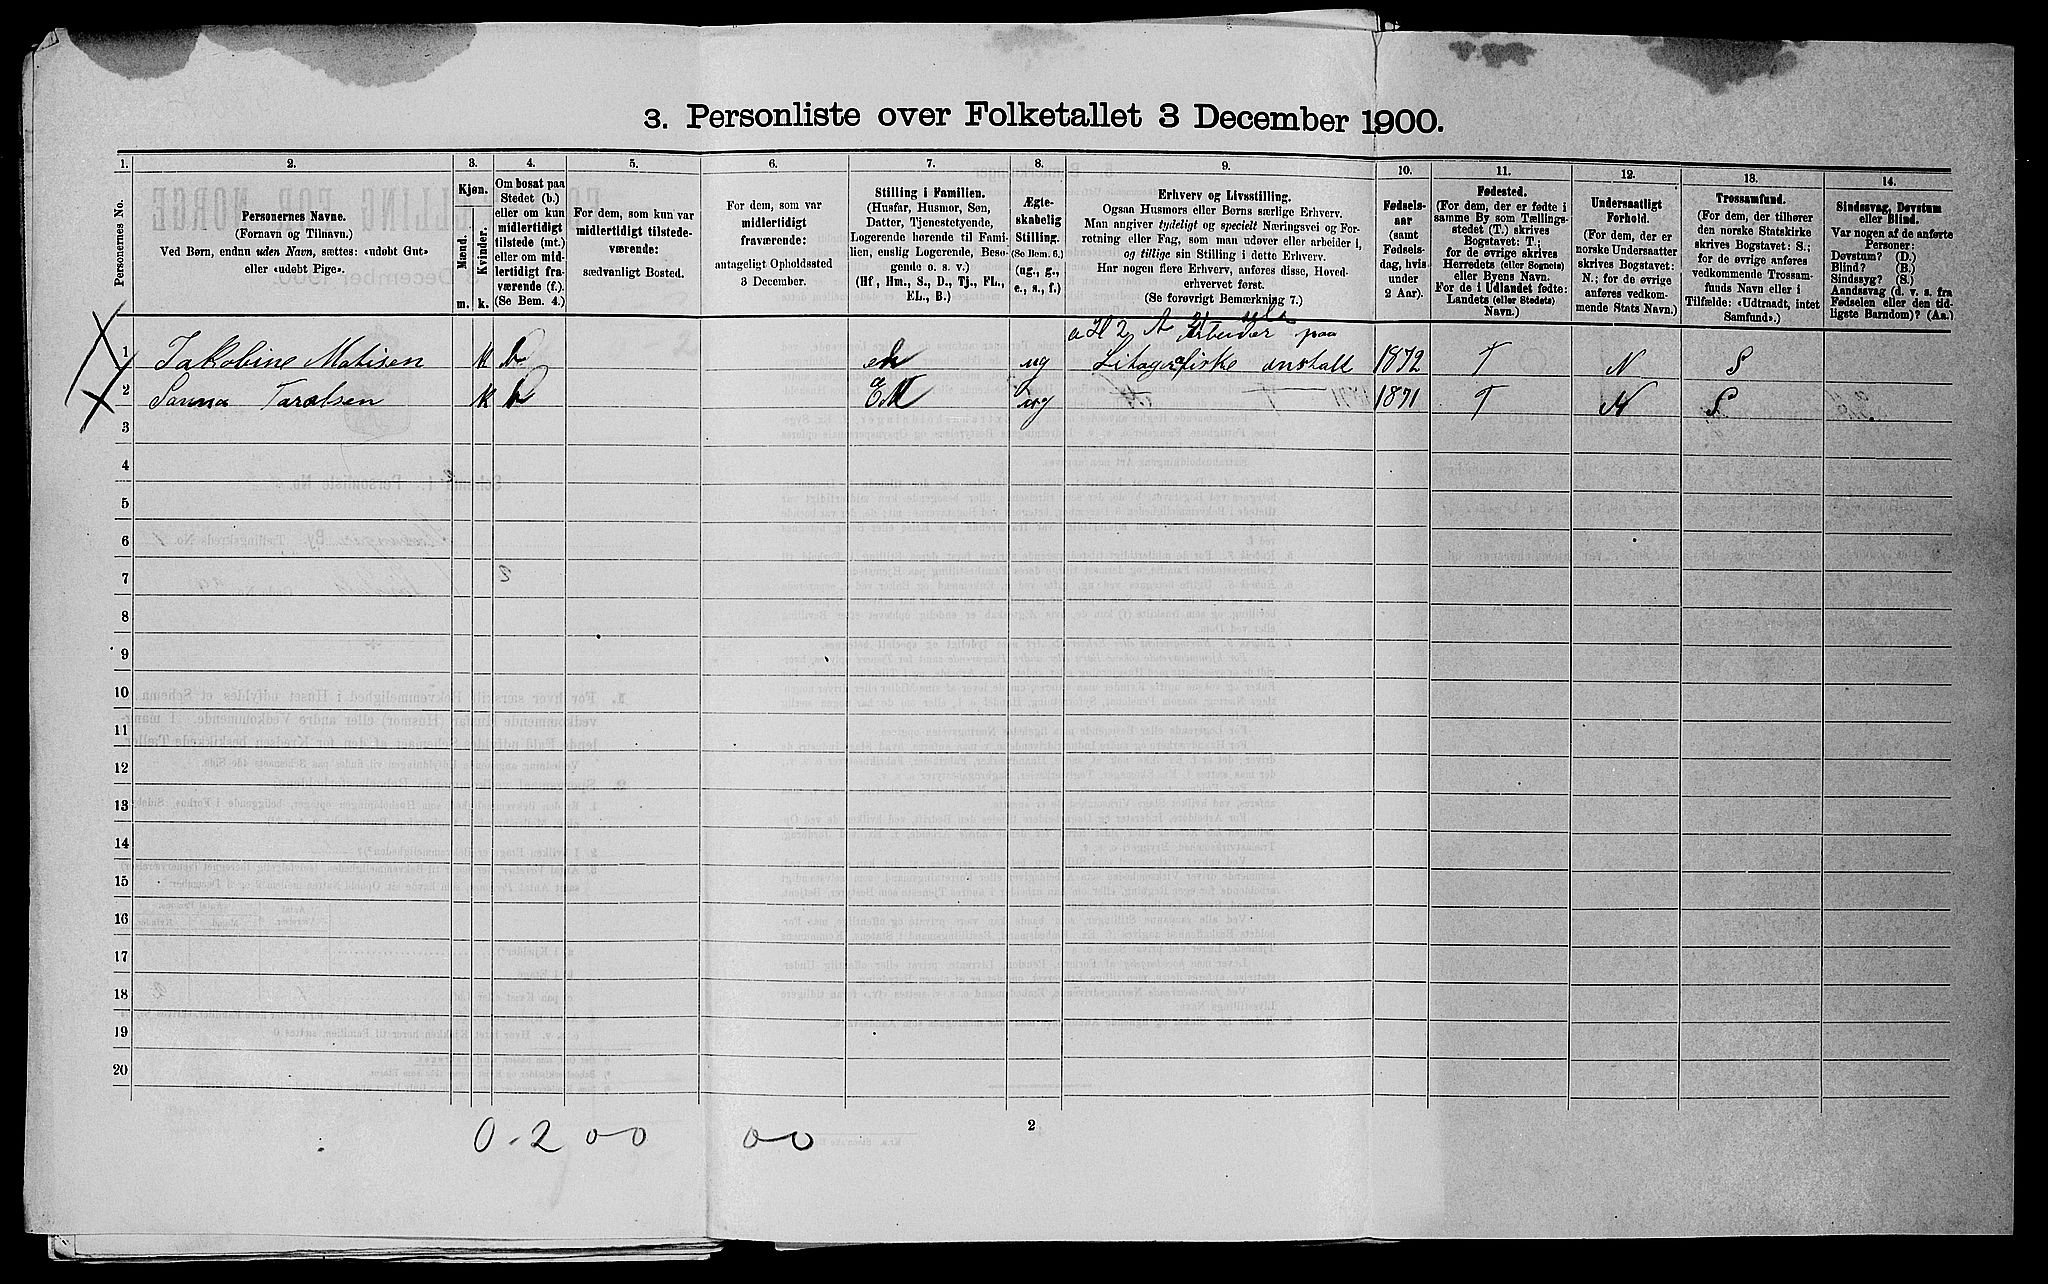 3. Personliste over Folketallet 3 December 1900.
1.
2.
3.
4.
5.
6.
7.
8.
9.
10.
11.
12.
13.
14.
Personernes No.
Personernes Navne.
(Fornavn og Tilnavn.)
Ved Børn, endnu uden Navn, sættes: «udøbt Gut»
eller «udøbt Pige».
Kjøn.
Mænd.
Kvinder.
m.
k.
Om bosat paa
Stedet (b.)
eller om kun
midlertidigt
tilstede (mt.)
eller om mid-
lertidigt fra-
værende (f.).
(Se Bem. 4.)
For dem, som kun var
midlertidigt tilstede-
værende:
sædvanligt Bosted.
For dem, som var
midlertidigt
fraværende:
antageligt Opholdssted
3 December.
Stilling i Familien.
(Husfar, Husmor, Søn,
Datter, Tjenestetyende,
Logerende hørende til Fami-
lien, enslig Logerende, Besø-
gende o. s. v.)
(Hf, Hm., S., D., Tj., FL.,
EL., B.)
Ægte-
skabelig
Stilling.
(Se Bem. 6.)
(ug., g.,
e., s., f.)
Erhverv og Livsstilling.
Ogsaa Husmors eller Børns særlige Erhverv.
Man angiver tydeligt og specielt Næringsvei og For-
retning eller Fag, som man udøver eller arbeider i,
og tillige sin Stilling i dette Erhverv.
Har nogen flere Erhverv, anføres disse, Hoved-
erhvervet først.
(Se forøvrigt Bemerkning 7.)
Fødsels-
aar
(samt
Fødsels-
dag, hvis
under
2 Aar).
Fødested.
(For dem, der er fødte i
samme By som Tællings-
stedet (T.) skrives
Bogstavet: T.;
for de øvrige skrives
Herredets (eller Sognets)
eller Byens Navn.
For de i Udlandet fødte:
Landets (eller Stedets)
Navn.)
Undersaatligt
Forhold.
(For dem, der er
norske Undersaatter
skrives Bogstavet:
N.; for de øvrige
anføres vedkom-
mende Stats Navn.)
Trossamfund.
(For dem, der tilhører
den norske Statskirke
skrives Bogstavet: S.;
for de øvrige anføres
vedkommende Trossam-
funds Navn eller i
Tilfælde: «Udtraadt, intet
Samfund».)
Sindssvag, Døvstum
eller Blind.
Var nogen af de anførte
Personer:
Døvstum? (D.)
Blind? (B.)
Sindssyg? (S.)
Aandssvag (d. v. s. fra
Fødselen eller den tid-
ligste Barndom)? (Aa.)
Arbeider paa
1 Jakobine Matisen k b el ug Litografiske anstalt 1872 T N S
2 Sanna Taralsen k b El ug 1871 T N S
3
4
5
6
7
8
9
10
11
12
13
14
15
16
17
18
19
20
0-2 00 00
2